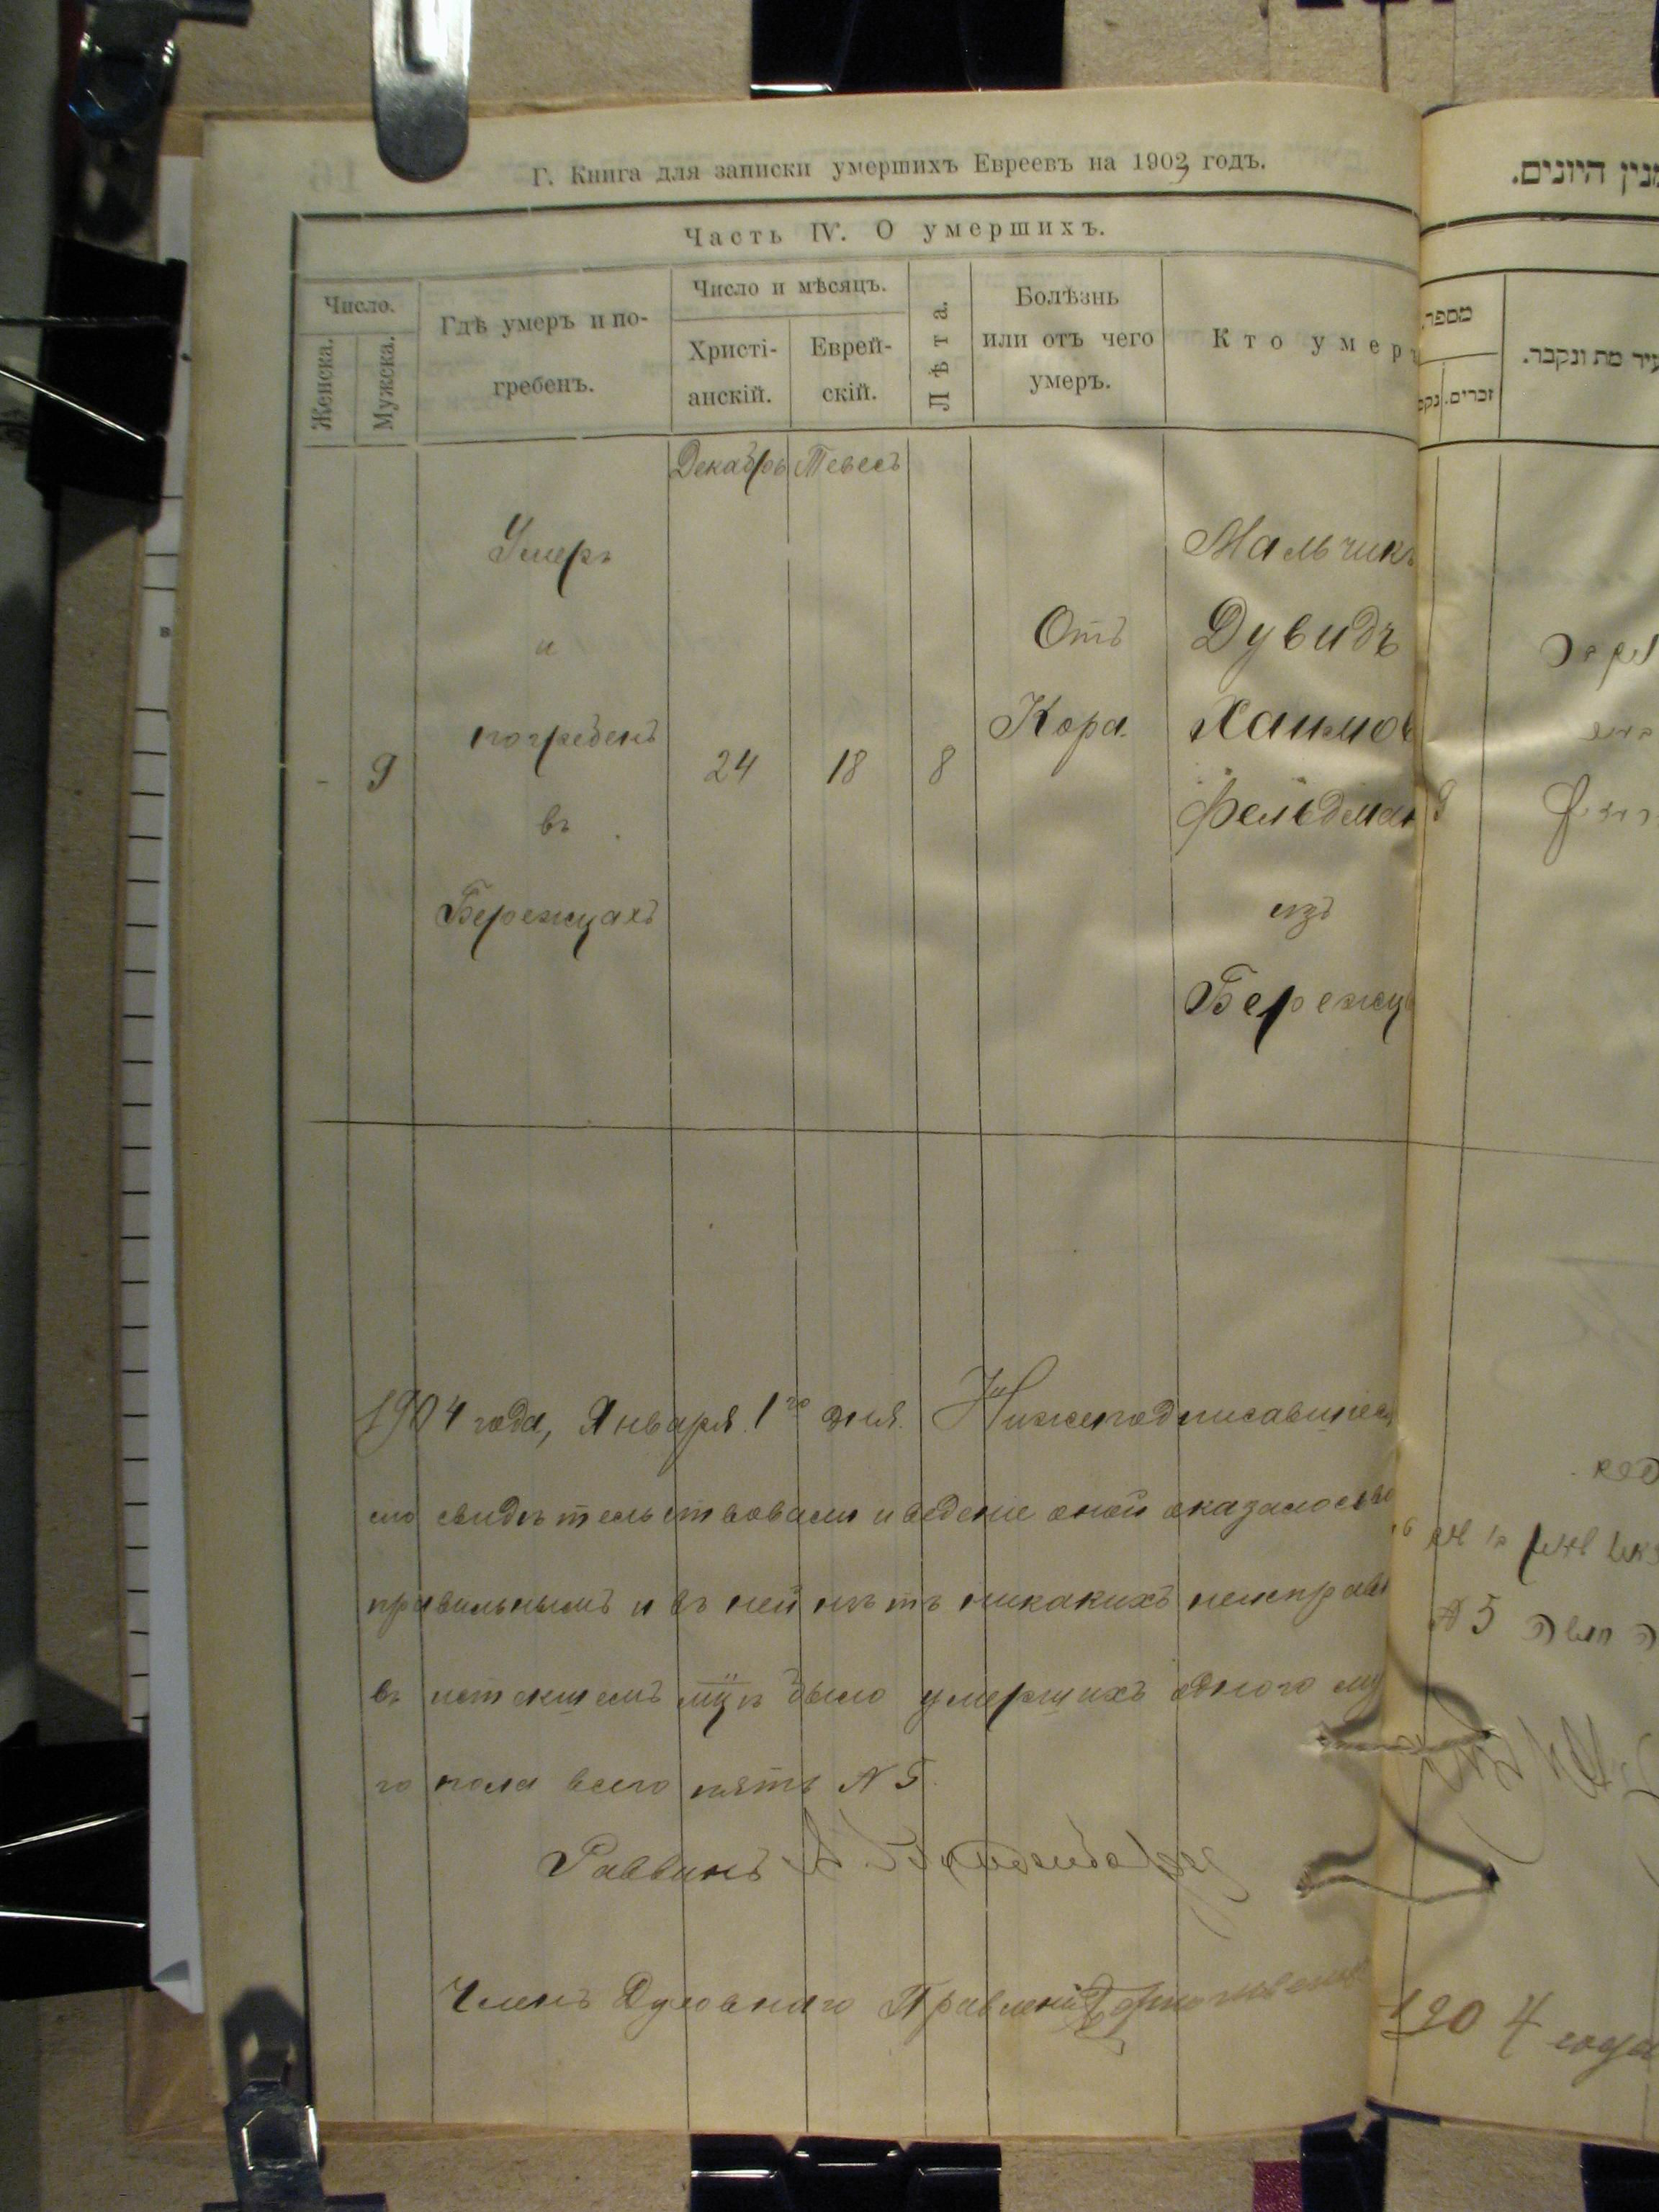 Г. Книга для записки умершихъ Евреевъ на 1903 годъ.
Часть IV. О умершихъ.
Число.
Женска.
Мужска.
Гдѣ умеръ и по-
гребенъ.
Число и мѣсяцъ.
Христі-
анскій.
Еврей-
скій.
Лѣта.
Болѣзнь
или отъ чего
умеръ.
Кто умеръ
Декабрь Тевесъ
Умеръ
и
погребенъ
въ
Бережцахъ
- 9
24
18
8
Отъ
Кора.
Мальчикъ
Дувидъ
Хаимов
Фельдман
изъ
Бережц
1904 года, Января 1го дня. Нижеподписавшіеся
сію свидѣтельствовали и веденіе оной оказалось
правильнымъ и въ ней нѣтъ никакихъ неисправ
въ истекшемъ мцѣ было умершихъ одного му
го пола всего пять №5.
Раввинъ
Членъ Духовнаго Правленія
מנין היונים.
מספר
זכרים.
נקב
עיר מת ונקבר.
9
№5
1904 года